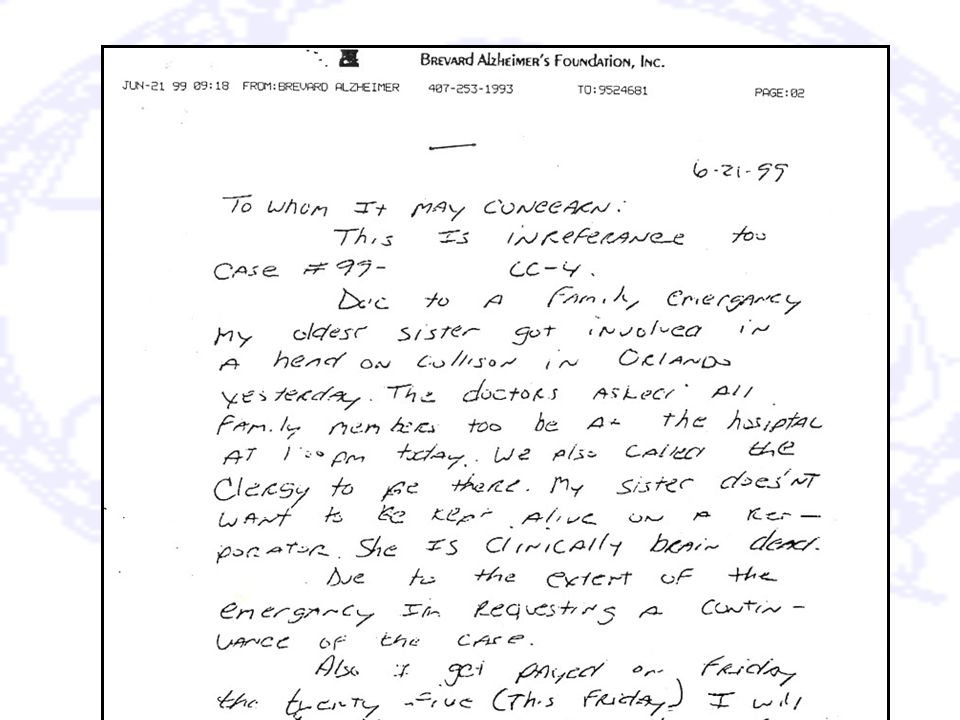 BREVARD ALZHEIMER'S FOUNDATION, INC.
JUN-21 99 09:18 FROM:BREVARD ALZHEIMER 407-253-1993 TO:9524681 PAGE:02
6-21-99
To whom It MAY CONCEARN:
This Is INReferANCe too
CASe # 99- CC-4.
Due to A Family emergancy
My oldest sister got involved in
A head on Collison in ORLANDO
yesterday. The doctors Asked All
Family members too be At the hosiptal
AT 1:00 pm today. We also Called the
Clergy to be there. My sister does'NT
WANT to be kept Alive on A Res-
porator. She IS Clinically brain dead.
Due to the extent of the
emergancy Im Requesting A Contin-
uance of the Case.
Also I get payed on Friday
the twenty-five (This Friday) I will